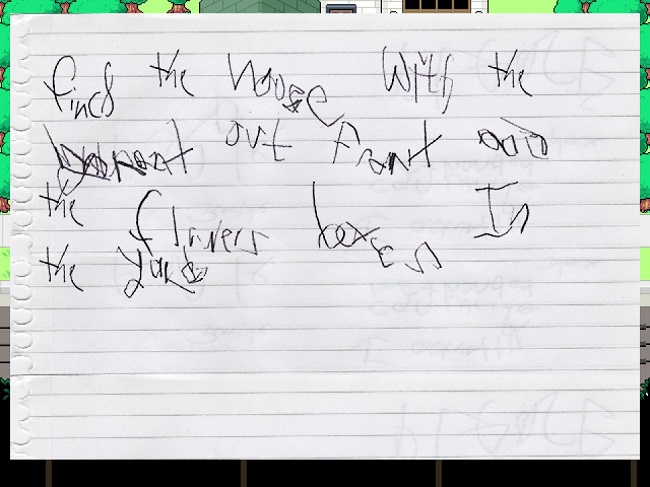 find the house with the
out front and
the flowers boxes In
the yard